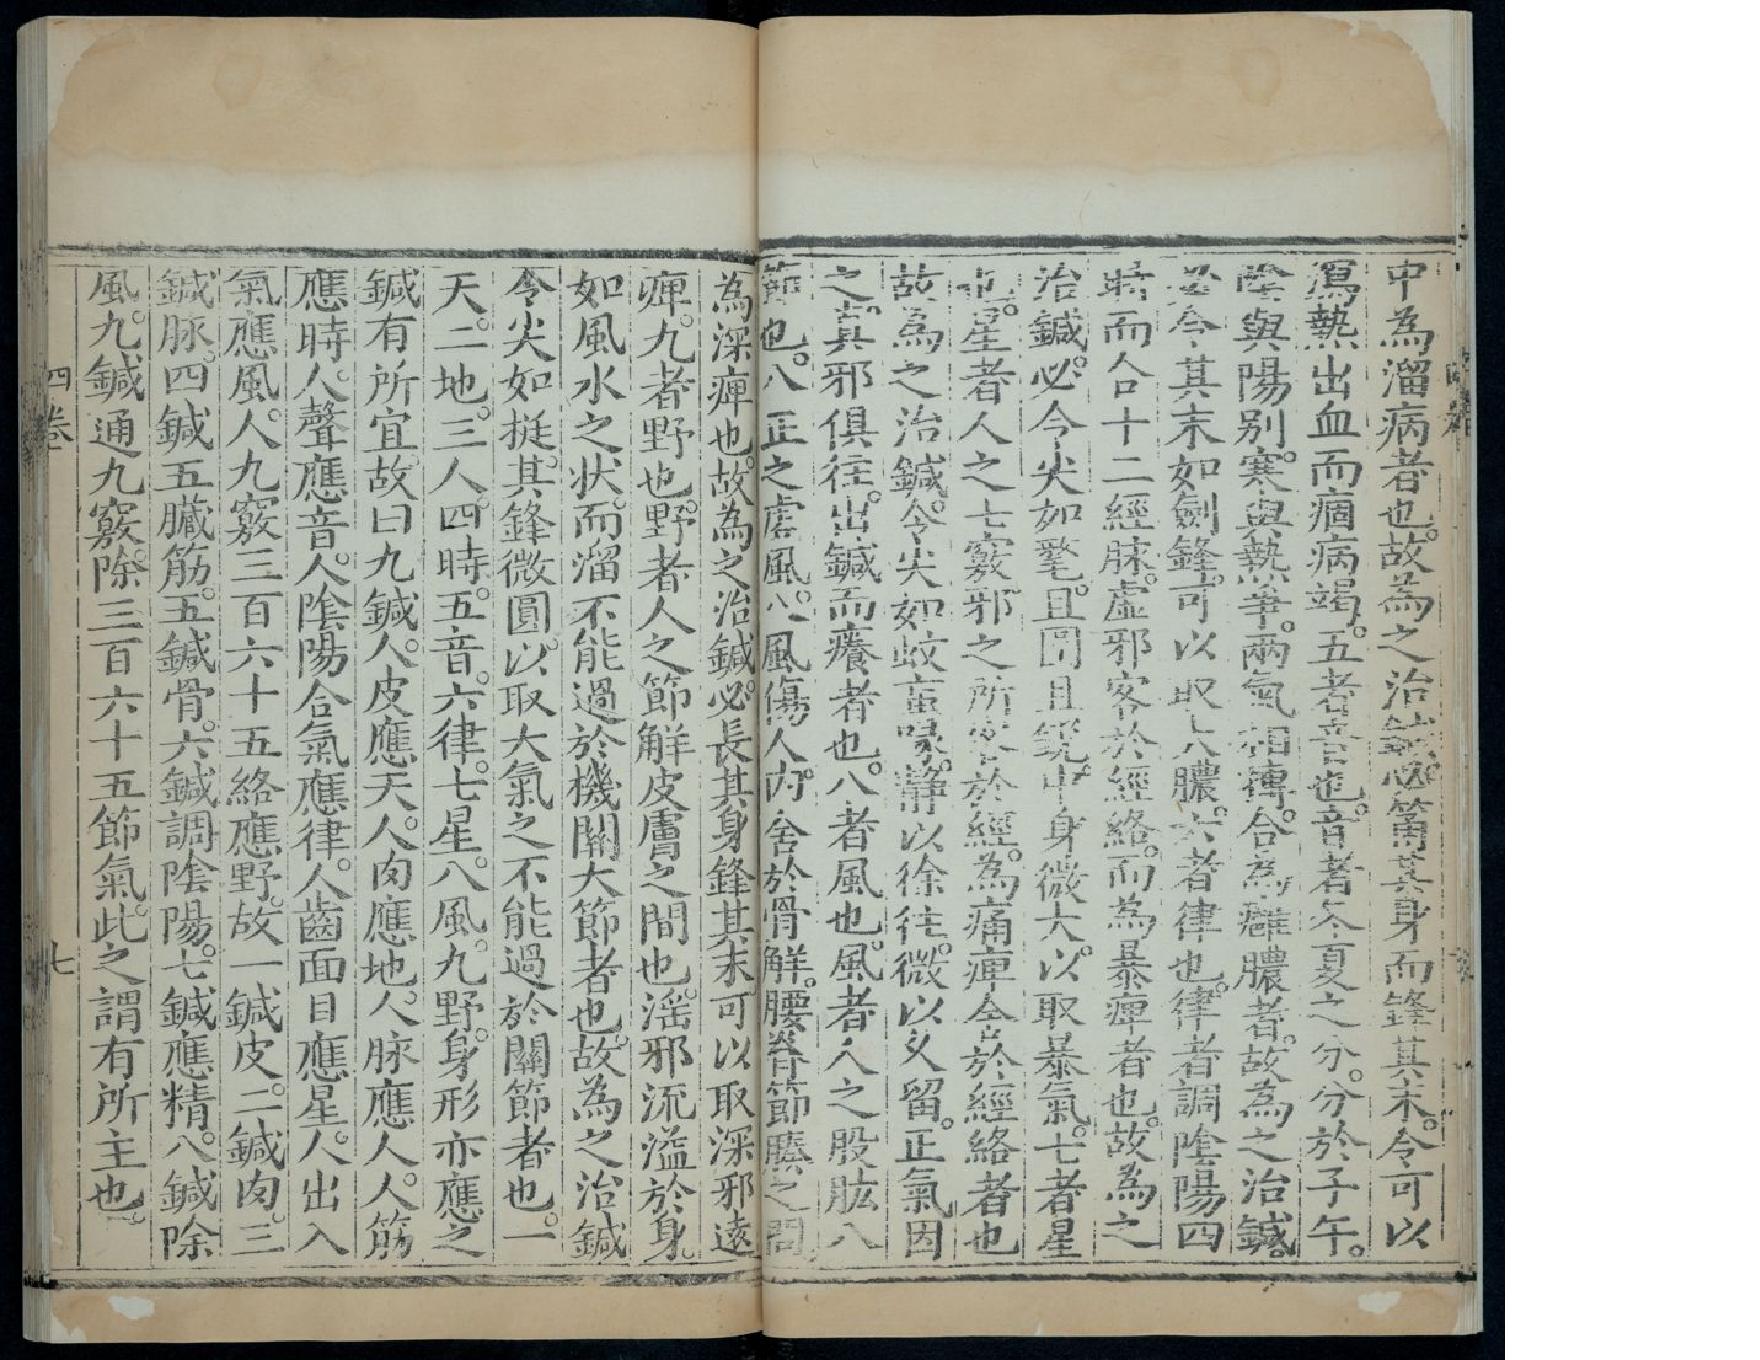 中為溜病者也故為之治鍼必筩其身而鋒其末令可以
瀉熱出血而痼病竭五者音也音者冬夏之分分於子午
陰與陽别寒與熱爭兩氣相摶合為癰膿者故為之治鍼
必令其末如劍鋒可以取大膿六者律也律者調陰陽四
時而合十二經脉虛邪客於經絡而為暴痺者也故為之
治鍼必令尖如氂且圓且銳中身微大以取暴氣七者星
也星者人之七竅邪之所客於經為痛痺舍於經絡者也
故為之治鍼令尖如蚊䖟喙静以徐往微以久留正氣因
之真邪俱往出鍼而癢者也八者風也風者人之股肱八
節也八正之虛風八風傷人内舍於骨解腰脊節腠之間
為深痺也故為之治鍼必長其身鋒其末可以取深邪遠
痺九者野也野者人之節解皮膚之間也滛邪流溢於身
如風水之状而溜不能過於機關大節者也故為之治鍼
令尖如挺其鋒微圓以取大氣之不能過於關節者也一
天二地三人四時五音六律七星八風九野身形亦應之
鍼有所宜故曰九鍼人皮應天人肉應地人脉應人人筋
應時人聲應音人陰陽合氣應律人齒面目應星人出入
氣應風人九竅三百六十五絡應野故一鍼皮二鍼肉三
鍼脉四鍼五臟筋五鍼骨六鍼調陰陽七鍼應精八鍼除
風九鍼通九竅除三百六十五節氣此之謂有所主也
四卷
七